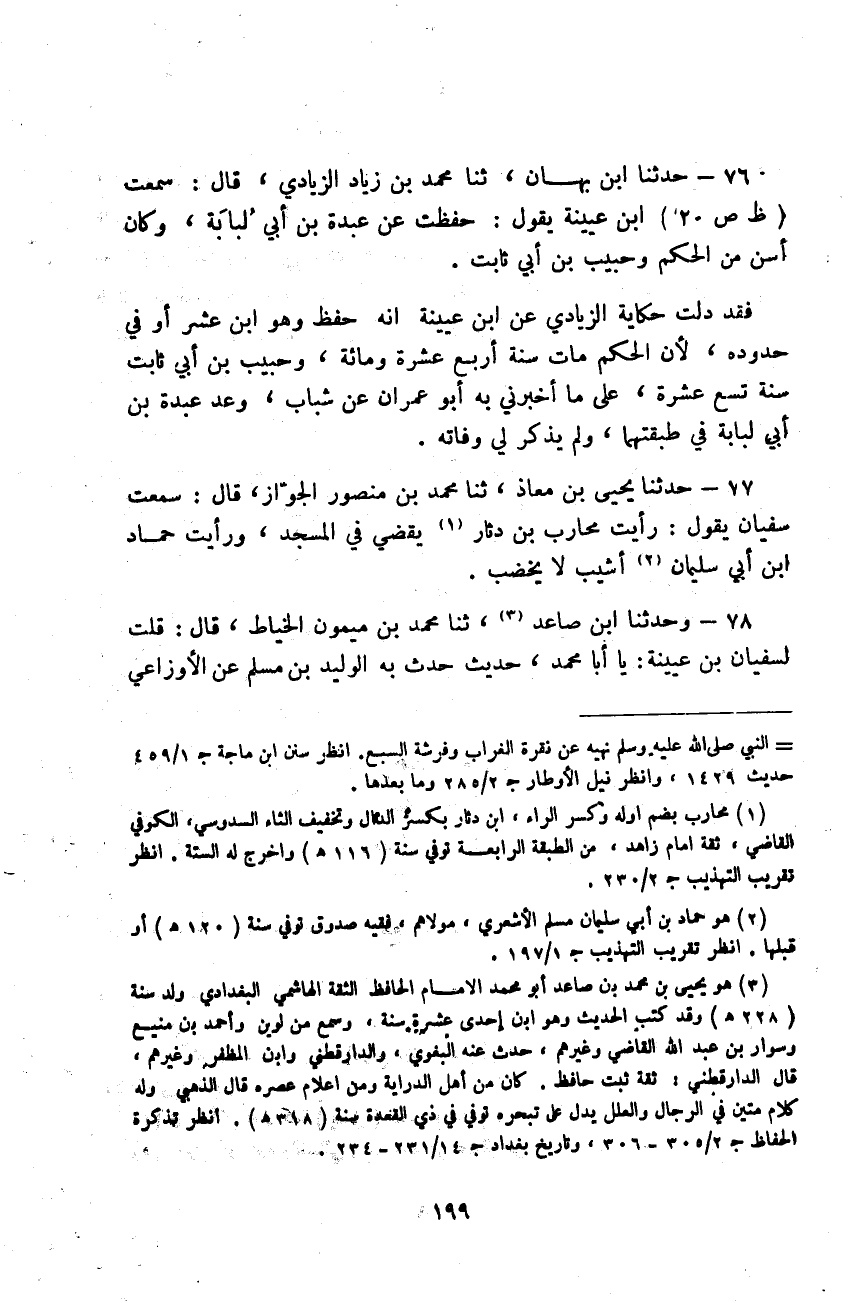 ٧٦ – حدثنا ابن بهـــان ، ثنا محمد بن زياد الزيادي ، قال : سمعت
( ظ ص ٢٠ ) ابن عيينة يقول : حفظت عن عبدة بن أبي لُبابَة ، وكان
أسن من الحكم وحبيب بن أبي ثابت .
فقد دلت حكاية الزيادي عن ابن عيينة انه حفظ وهو ابن عشر أو في
حدوده ، لأن الحكم مات سنة أربع عشرة ومائة ، وحبيب بن أبي ثابت
سنة تسع عشرة ، على ما أخبرني به أبو عمران عن شباب ، وعد عبدة بن
أبي لبابة في طبقتهما ، ولم يذكر لي وفاته .
٧٧ – حدثنا يحيى بن معاذ ، ثنا محمد بن منصور الجوّاز، قال : سمعت
سفيان يقول : رأيت محارب بن دثار (١) يقضي في المسجد ، ورأيت حمـاد
ابن أبي سليمان (٢) أشيب لا يخضب .
٧٨ – وحدثنا ابن صاعد (٣) ، ثنا محمد بن ميمون الخياط ، قال : قلت
لسفيان بن عيينة : يا أبا محمد ، حديث حدث به الوليد بن مسلم عن الأوزاعي
= النبي صلى الله عليه وسلم نهيه عن نقرة الغراب وفرشة السبع. انظر سنن ابن ماجة جـ ٤٥٩/١
حديث ١٤٢٩ ، وانظر نيل الأوطار جـ ٢٨٥/٢ وما بعدها .
(١) محارب بضم اوله وكسر الراء ، ابن دثار بكسر الدال وتخفيف الثاء السدوسي، الكوفي
القاضي ، ثقة امام زاهد ، من الطبقة الرابعـــة توفي سنة ( ١١٦ هـ ) واخرج له الستة . انظر
تقريب التهذيب جـ ٢٣٠/٢ .
(٢) هو حماد بن أبي سليمان مسلم الأشعري ، مولاهم ، فقيه صدوق توفي سنة ( ١٢٠ هـ ) أو
قبلها . انظر تقريب التهذيب جـ ١٩٧/١ .
(٣) هو يحيى بن محمد بن صاعد أبو محمد الامــام الحافظ الثقة الهاشمي البغدادي ولد سنة
( ٢٢٨ هـ ) وقد كتب الحديث وهو ابن إحدى عشرة سنة ، وسمع من لوين وأحمد بن منيـع
وسوار بن عبد الله القاضي وغيرهم ، حدث عنه البغوي ، والدارقطني وابن المظفر وغيرهم ،
قال الدارقطني : ثقة ثبت حافظ . كان من أهل الدراية ومن اعلام عصره قال الذهبي وله
كلام متين في الرجال والعلل يدل على تبحره توفي في ذي القعدة سنة ( ٣١٨ هـ ) . انظر تذكرة
الحفاظ جـ ٣٠٥/٢ – ٣٠٦ ، وتاريخ بغداد جـ ٢٣١/١٤ – ٢٣٤ .
١٩٩